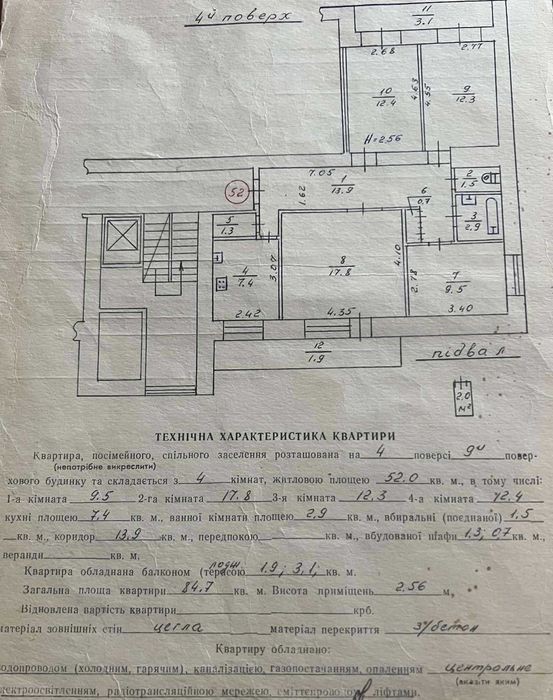 4й поверх
11
3.1
2.68
2.77
10
12.4
4.63
4.55
9
12.3
H=2.56
7.05
52
1.62
1
13.9
6
0.7
2
1.5
3
2.9
5
1.3
4
7.4
3.07
8
17.8
4.10
2.78
7
9.5
2.42
4.35
3.40
12
1.9
підвал
2,0
м²
ТЕХНІЧНА ХАРАКТЕРИСТИКА КВАРТИРИ
Квартира, посімейного, спільного заселення розташована на 4 поверсі 9й повер-
(непотрібне викреслити)
хового будинку та складається з 4 кімнат, житловою площею 52.0 кв. м., в тому числі:
1-а кімната 9.5 2-га кімната 17.8 3-я кімната 12.3 4-а кімната 12.4
кухні площею 7,4 кв. м., ванної кімнати площею 2,9 кв. м., вбиральні (поєднаної) 1,5
кв. м., коридор 13,9 кв. м., передпокою кв. м., вбудованої шафи 1.3; 0,7 кв. м.,
веранди кв. м.
Квартира обладнана балконом (терасою лодж. 1.9; 3,1; кв. м.
Загальна площа квартири 84,7 кв. м. Висота приміщень 2.56 м,
Відновлена вартість квартири крб.
матеріал зовнішніх стін цегла матеріал перекриття з/бетон
Квартиру обладнано:
водопроводом (холодним, гарячим), каналізацією, газопостачанням, опаленням центральне
(вказати яким)
електроосвітленням, радіотрансляційною мережею, сміттєпроводом, ліфтами.